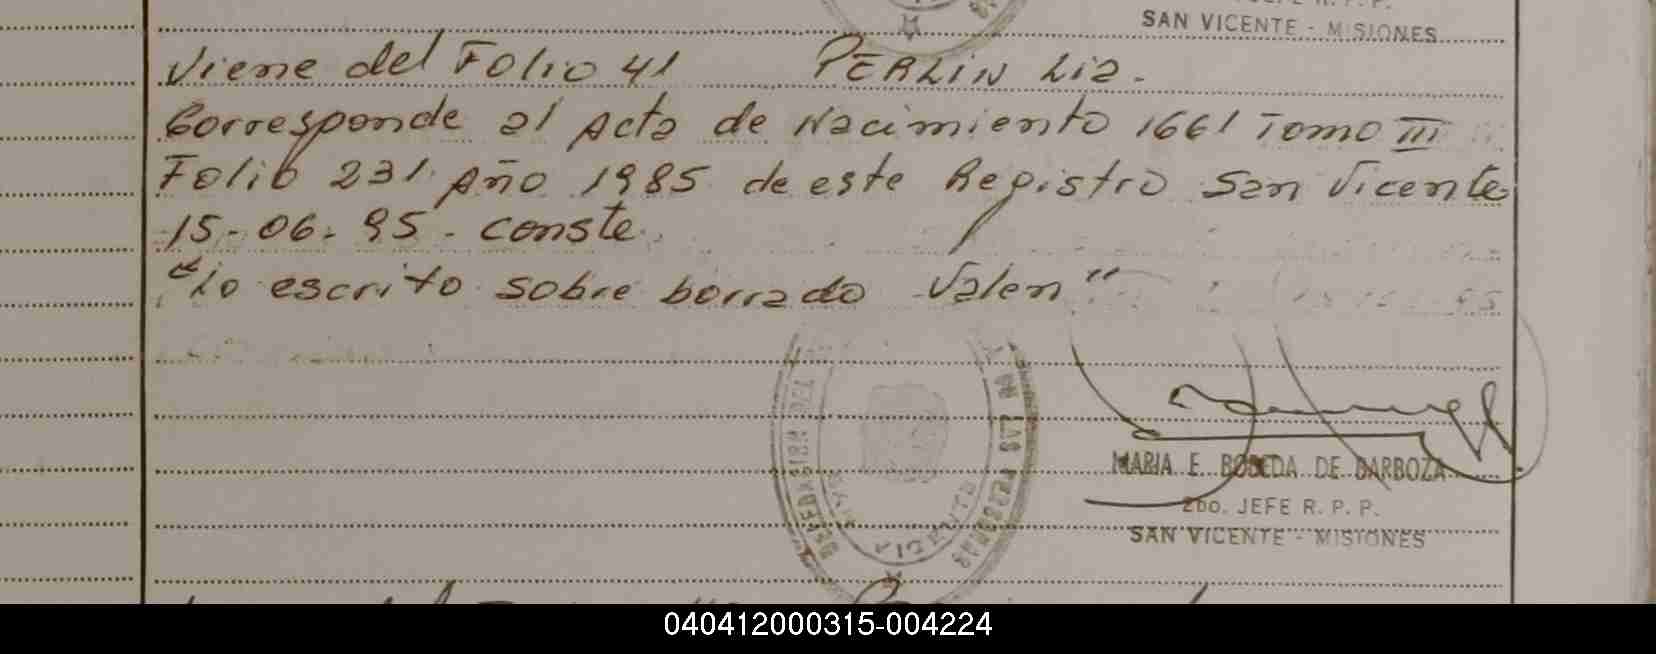 SAN VICENTE - MISIONES
Viene del Folio 41 PERLIN Liz.
Corresponde al Acta de Nacimiento 1661 Tomo III
Folio 231 Año 1985 de este Registro San Vicente
15-06-95 - conste
"Lo escrito sobre borrado Valen"
MARIA E. BOBEDA DE BARBOZA
2DO. JEFE R. P. P.
SAN VICENTE - MISIONES
040412000315-004224